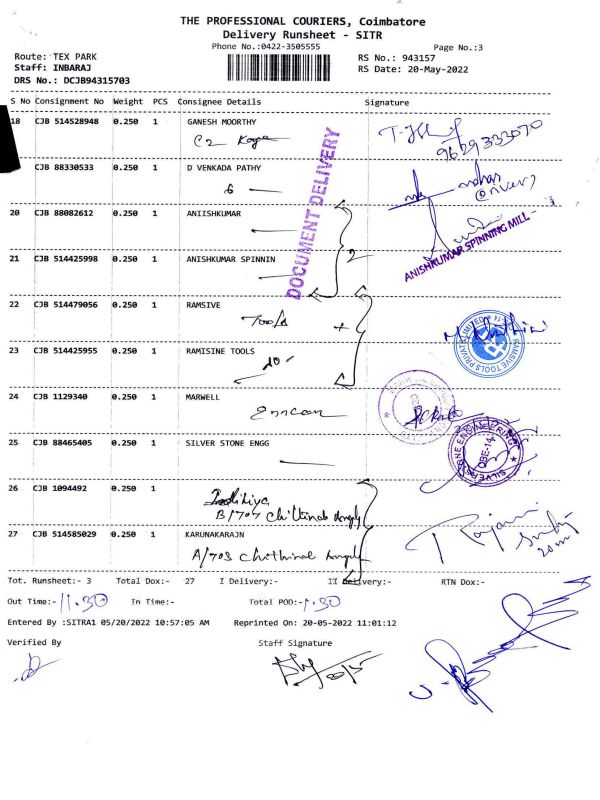 THE PROFESSIONAL COURIERS, Coimbatore
Delivery Runsheet - SITR
Phone No.:0422-3505555 Page No.:3
Route: TEX PARK RS No.: 943157
Staff: INBARAJ RS Date: 20-May-2022
DRS No.: DCJB94315703
S No Consignment No Weight PCS Consignee Details Signature
18 CJB 514528948 0.250 1 GANESH MOORTHY
9629333070
CJB 88330533 0.250 1 D VENKADA PATHY
6
DOCUMENT DELIVERY
20 CJB 88082612 0.250 1 ANIISHKUMAR
ANISHKUMAR SPINNING MILL
21 CJB 514425998 0.250 1 ANISHKUMAR SPINNIN 2
22 CJB 514479056 0.250 1 RAMSIVE
Tools
RAMSIVE TOOLS PRIVATE LIMITED
23 CJB 514425955 0.250 1 RAMISINE TOOLS
24 CJB 1129340 0.250 1 MARWELL
25 CJB 88465405 0.250 1 SILVER STONE ENGG
SILVERSTONE ENGINEERING
CBE-14
26 CJB 1094492 0.250 1
B/707
27 CJB 514585029 0.250 1 KARUNAKARAJN
A/703
Tot. Runsheet:- 3 Total Dox:- 27 I Delivery:- II Delivery:- RTN Dox:-
Out Time:- 11.30 In Time:- Total POD:- 1.30
Entered By :SITRA1 05/20/2022 10:57:05 AM Reprinted On: 20-05-2022 11:01:12
Verified By Staff Signature